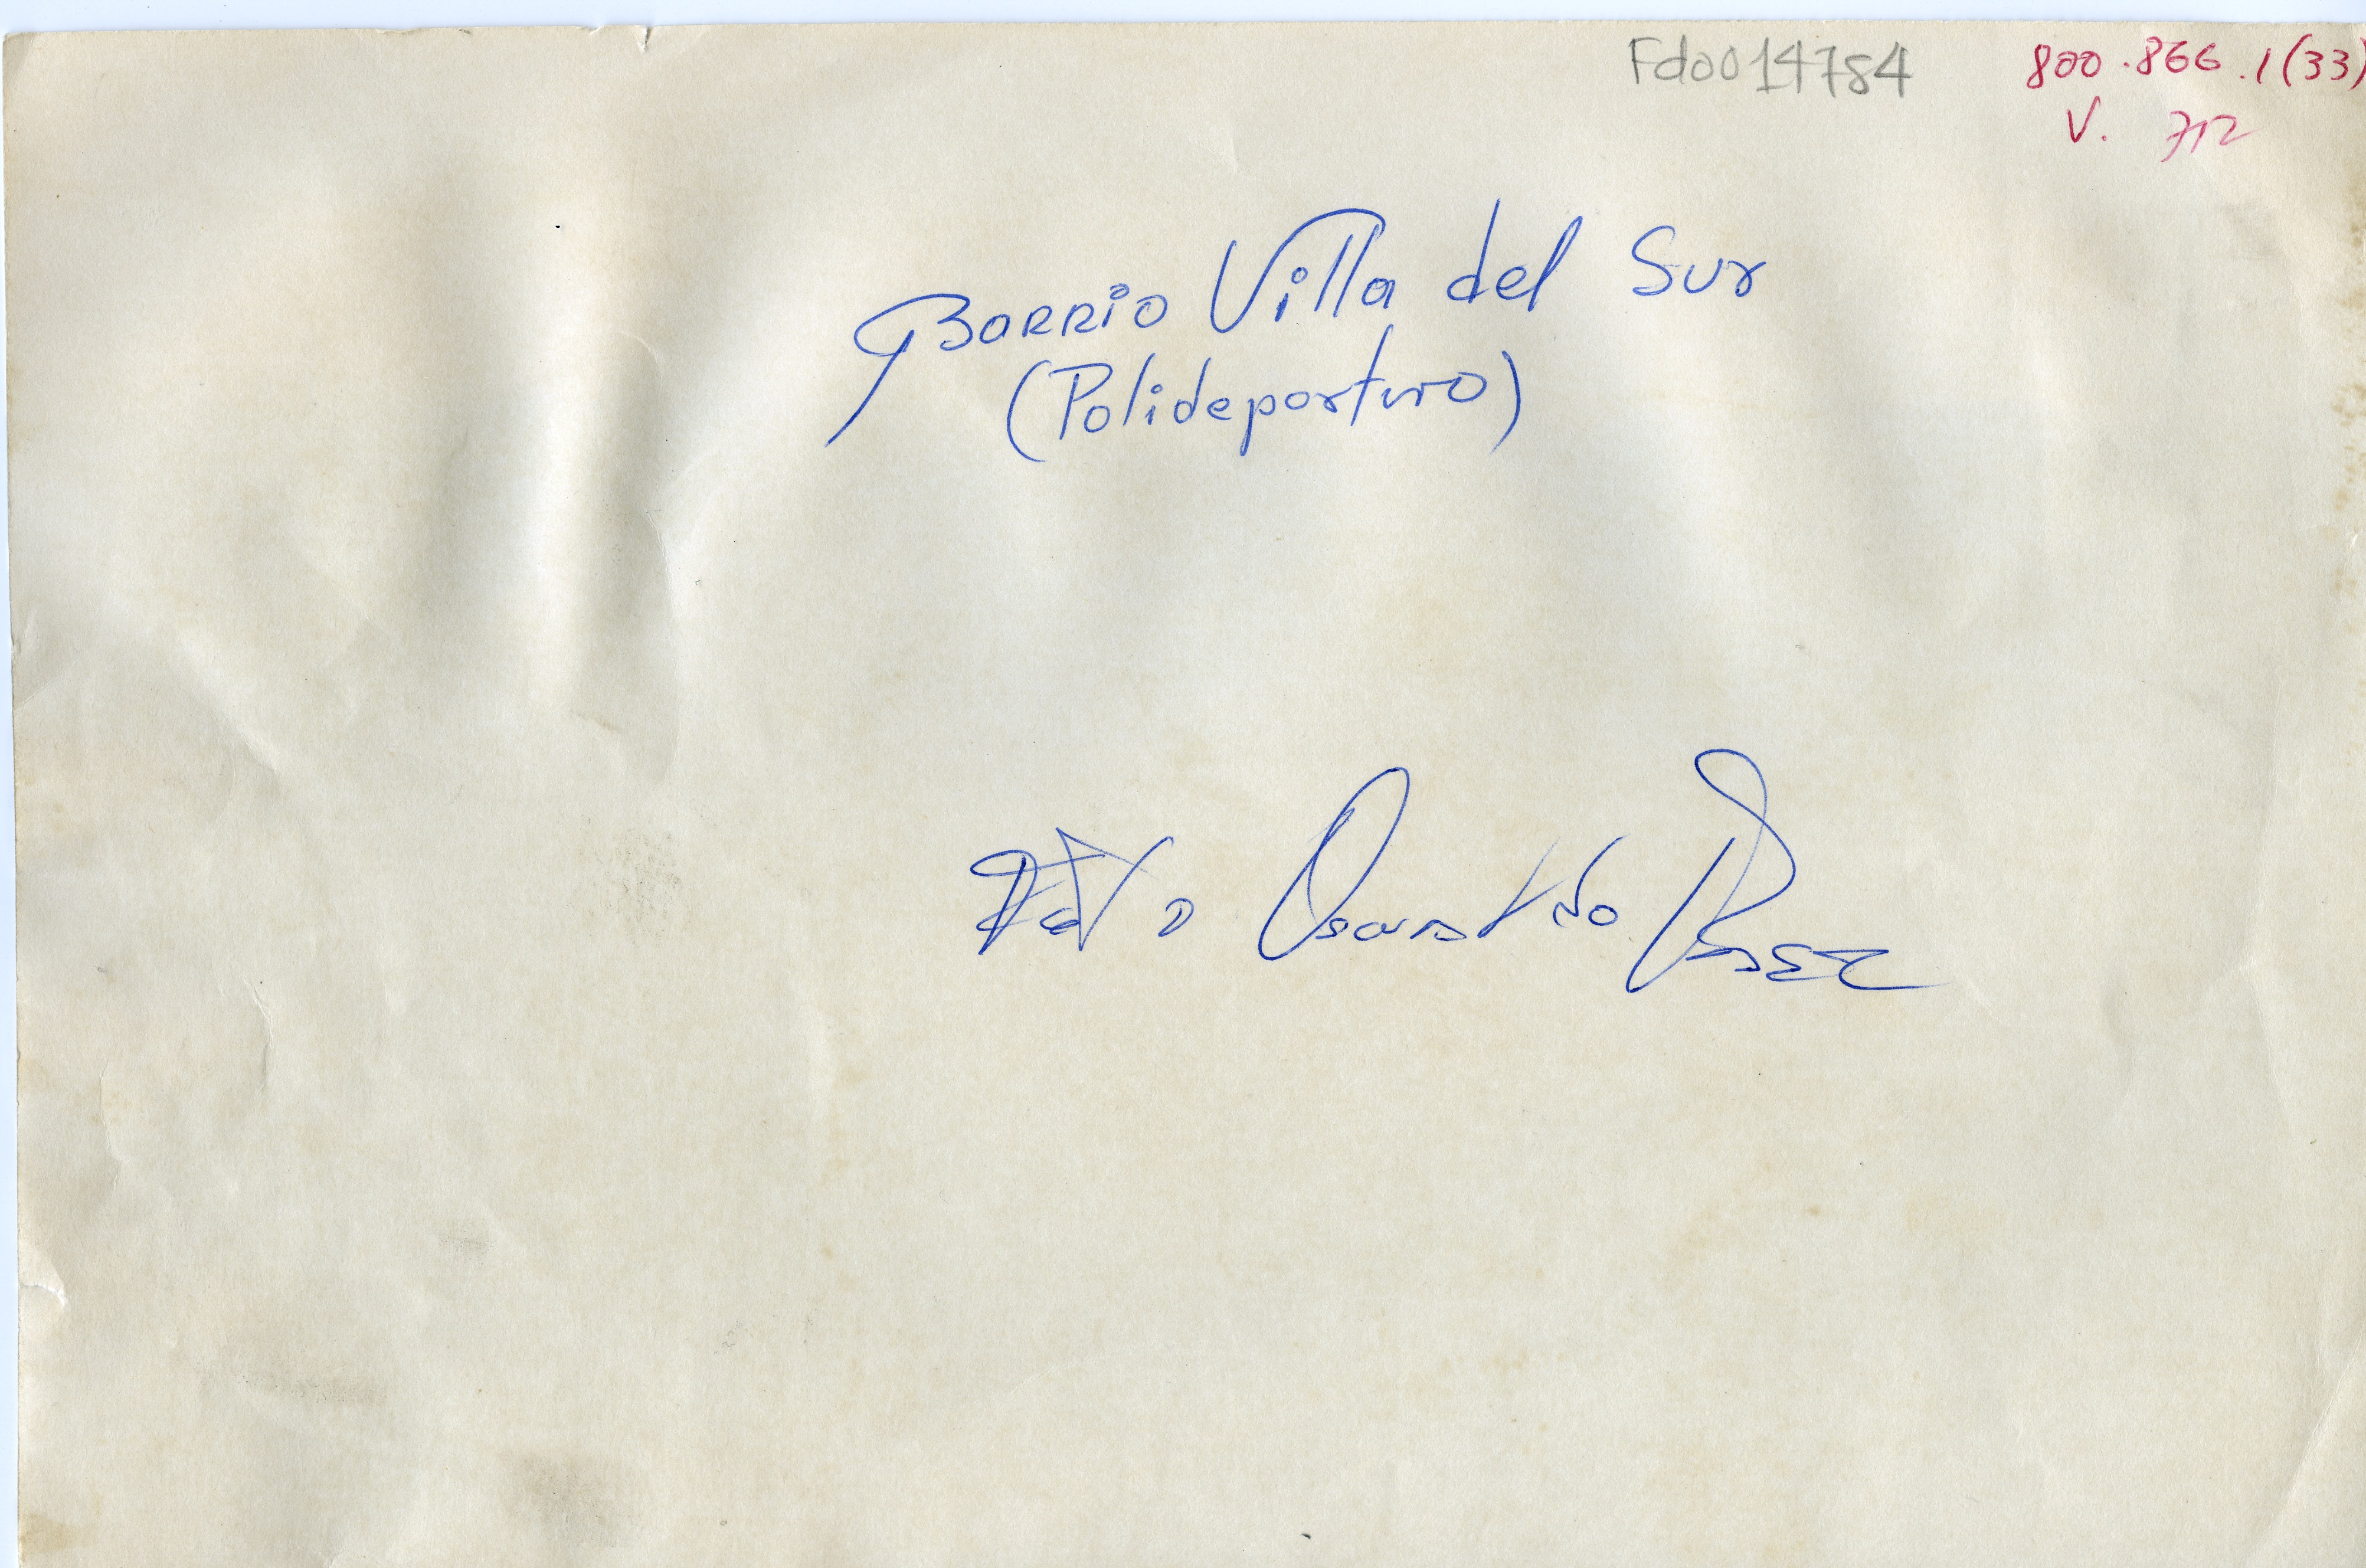 Fd0014784
800.866.1(33)
V. 712
Barrio Villa del Sur
(Polideportivo)
Osvaldo Pérez